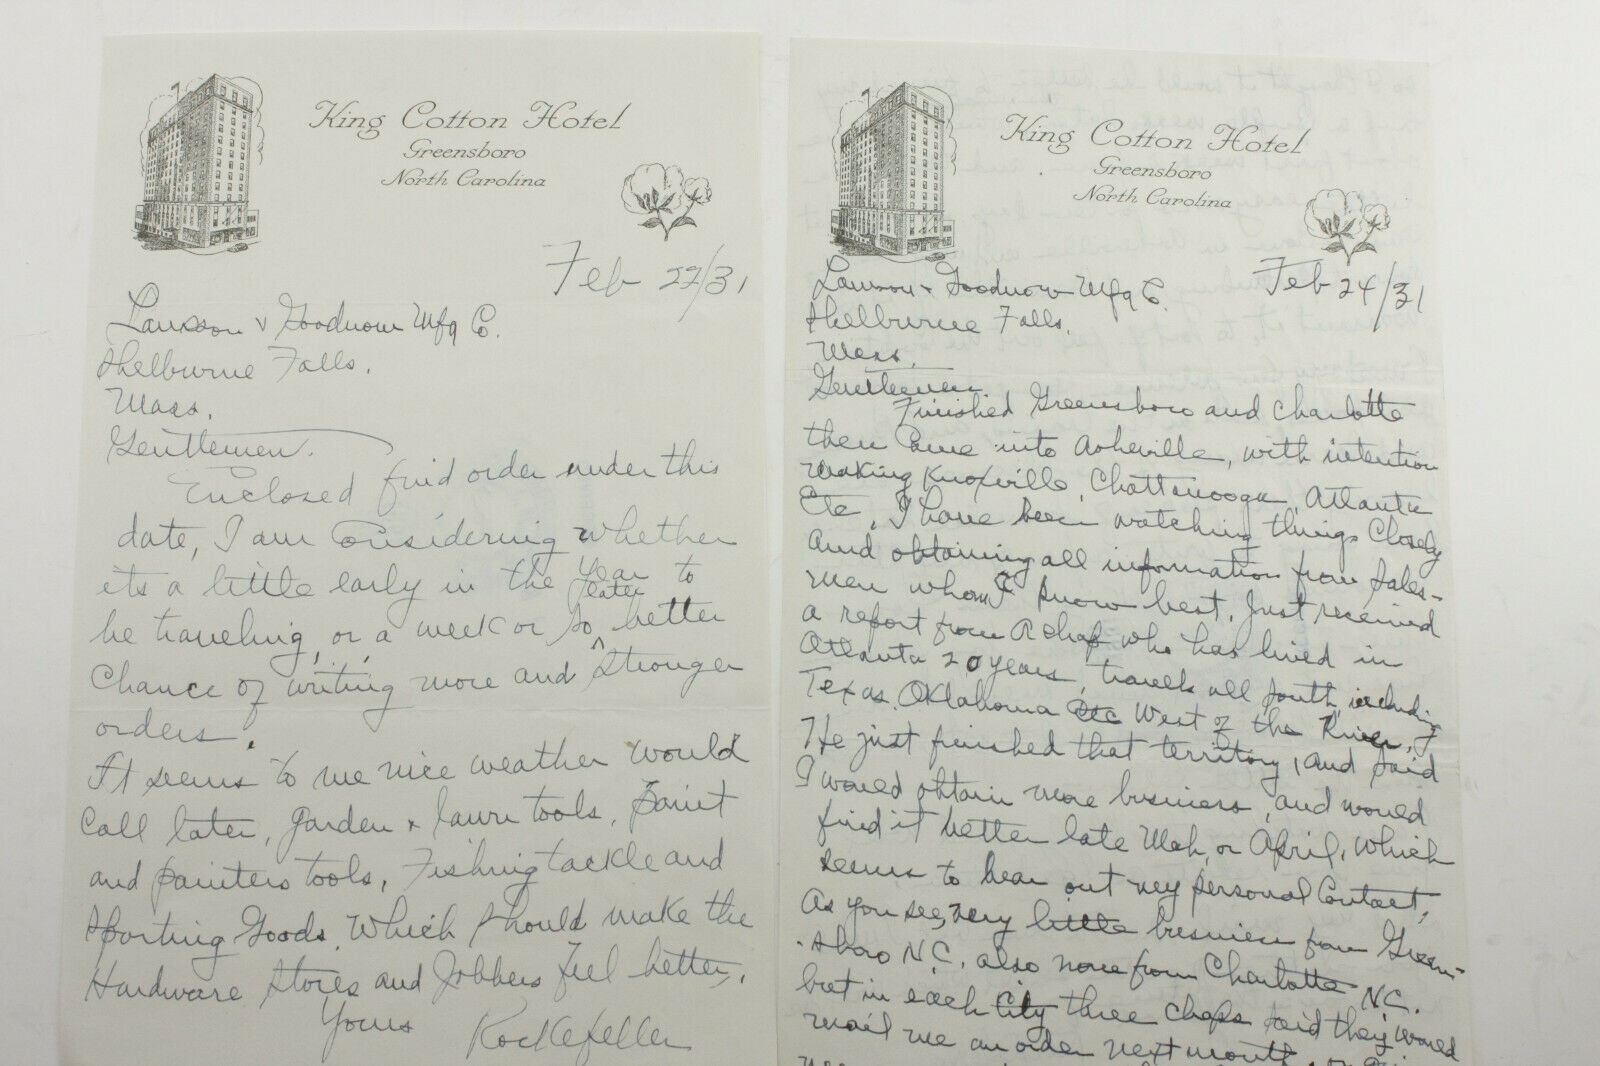 King Cotton Hotel
Greensboro
North Carolina
Feb 22/31
Lamson & Goodnow Mfg Co.
Shelburne Falls.
Mass.
Gentlemen.
Enclosed find order under this
date, I am Considering whether
its a little early in the year to
later
be traveling, or a week or so better
Chance of writing more and Stronger
orders.
It seems to me nice weather would
Call later, garden & lawn tools, Paint
and painters tools, Fishing tackle and
Sporting Goods. Which should make the
Hardware Stores and Jobbers Feel better.
Yours Rockefeller
King Cotton Hotel
Greensboro
North Carolina
Feb 24/31
Lamson & Goodnow Mfg Co.
Shelburne Falls.
Mass.
Gentlemen
Finished Greensboro and Charlotte
then Came into Asheville, with intention
making Knoxville, Chattanooga, Atlanta
Etc. I have been watching things Closely
and obtaining all information from Sales-
men whom I know best. Just received
a report from A Chap who has lived in
Atlanta 20 years, travels all South, including
Texas. Oklahoma Etc West of the River,
He just finished that territory, and said
I would obtain more business, and would
find it better late Mch, or April, Which
seems to bear out my personal Contact,
As you see, very little business from Greens-
boro N.C. also none from Charlotte N.C.
but in each City three chaps said they would
mail me an order next month